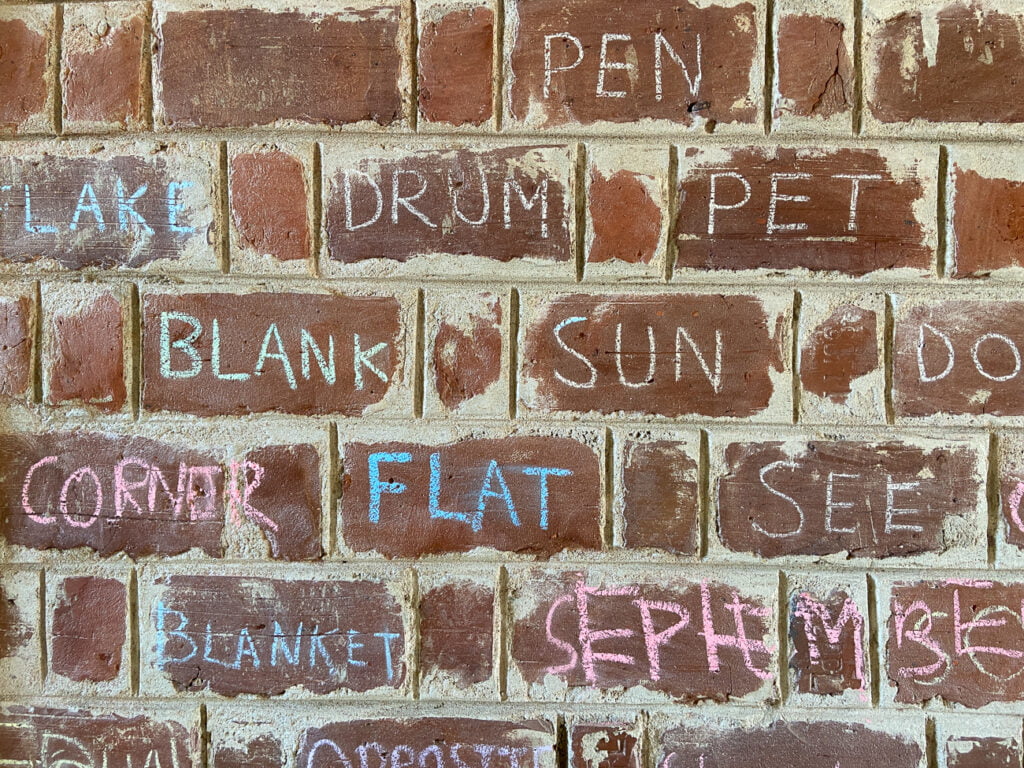 PEN
FLAKE DRUM PET
BLANK SUN DO
CORNER FLAT SEE
BLANKET SEPtEMBE
OPPOSITE